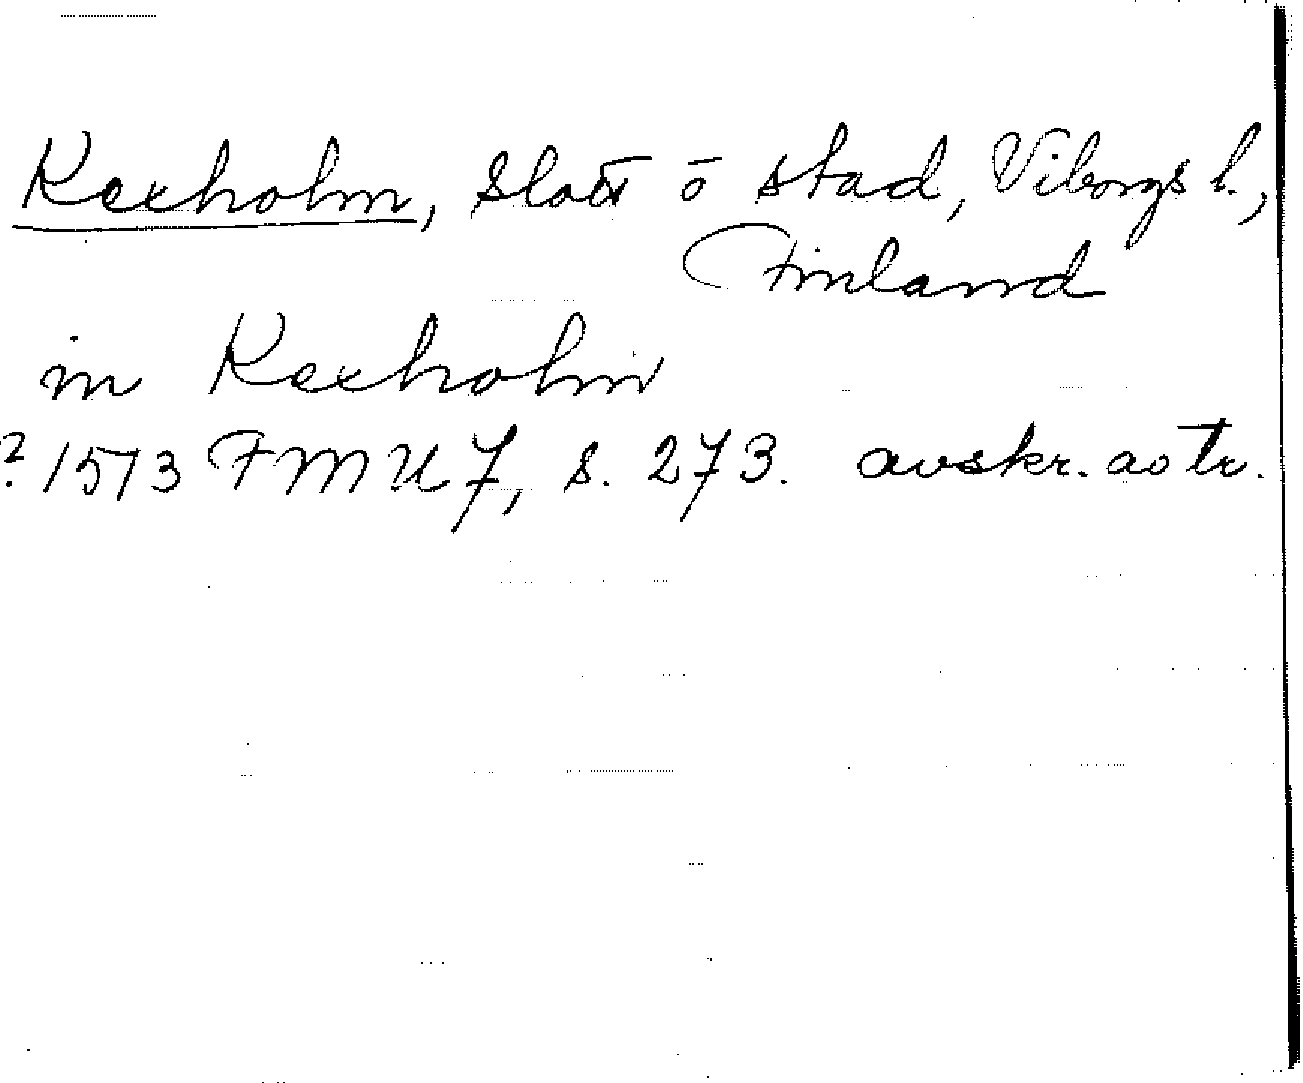 Kexholm, slott o stad, Viborgs l.,
Finland
in Kexholm
? 1573 FMU 7, s. 273. avskr. ao tr.